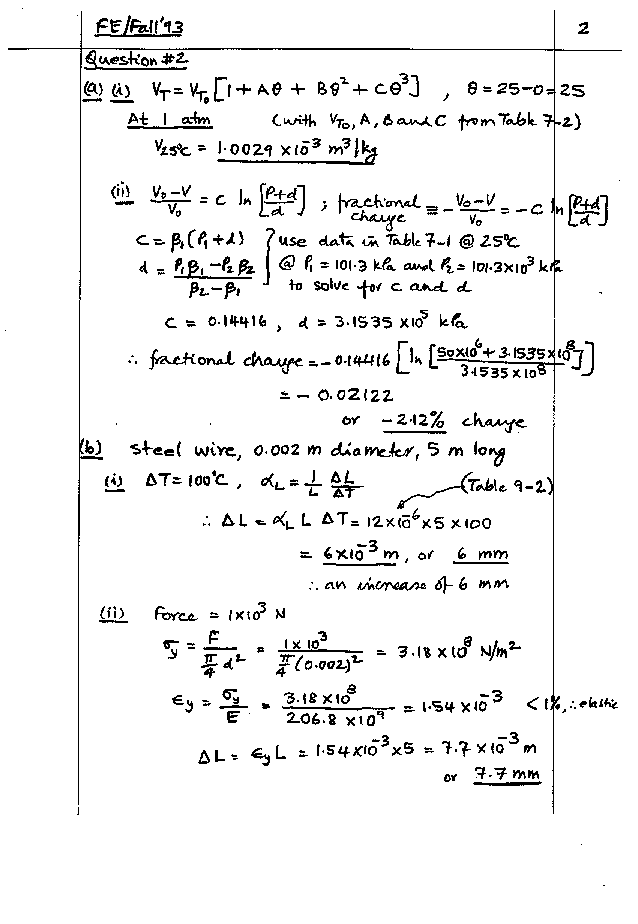 FE/Fall'93 2
Question #2
(a) (i) V_T = V_T₀ [1 + Aθ + Bθ² + Cθ³] , θ = 25-0 = 25
At 1 atm (with V_T₀, A, B and C from Table 7-2)
V_25°C = 1.0029 × 10⁻³ m³/kg
(ii) (V₀-V)/V₀ = C ln [(P+d)/d] ; fractional change ≡ -(V₀-V)/V₀ = -C ln [(P+d)/d]
C = β₁(P₁+d) } use data in Table 7-1 @ 25°C
d = (P₁β₁ - P₂β₂)/(β₂-β₁) @ P₁ = 101.3 kPa and P₂ = 101.3×10³ kPa
to solve for c and d
C = 0.14416 , d = 3.1535 × 10⁵ kPa
∴ fractional change = -0.14416 [ln [(50×10⁶ + 3.1535×10⁸)/(3.1535×10⁸)]]
= - 0.02122
or -2.12% change
(b) Steel wire, 0.002 m diameter, 5 m long
(i) ΔT = 100°C , α_L = (1/L) (ΔL/ΔT) (Table 9-2)
∴ ΔL = α_L L ΔT = 12×10⁻⁶ × 5 × 100
= 6×10⁻³ m, or 6 mm
∴ an increase of 6 mm
(ii) Force = 1×10³ N
σ_y = F/((π/4) d²) = (1×10³)/((π/4)(0.002)²) = 3.18 × 10⁸ N/m²
ε_y = σ_y/E = (3.18 × 10⁸)/(206.8 × 10⁹) = 1.54 × 10⁻³ < 1%, ∴ elastic
ΔL = ε_y L = 1.54×10⁻³×5 = 7.7 × 10⁻³ m
or 7.7 mm